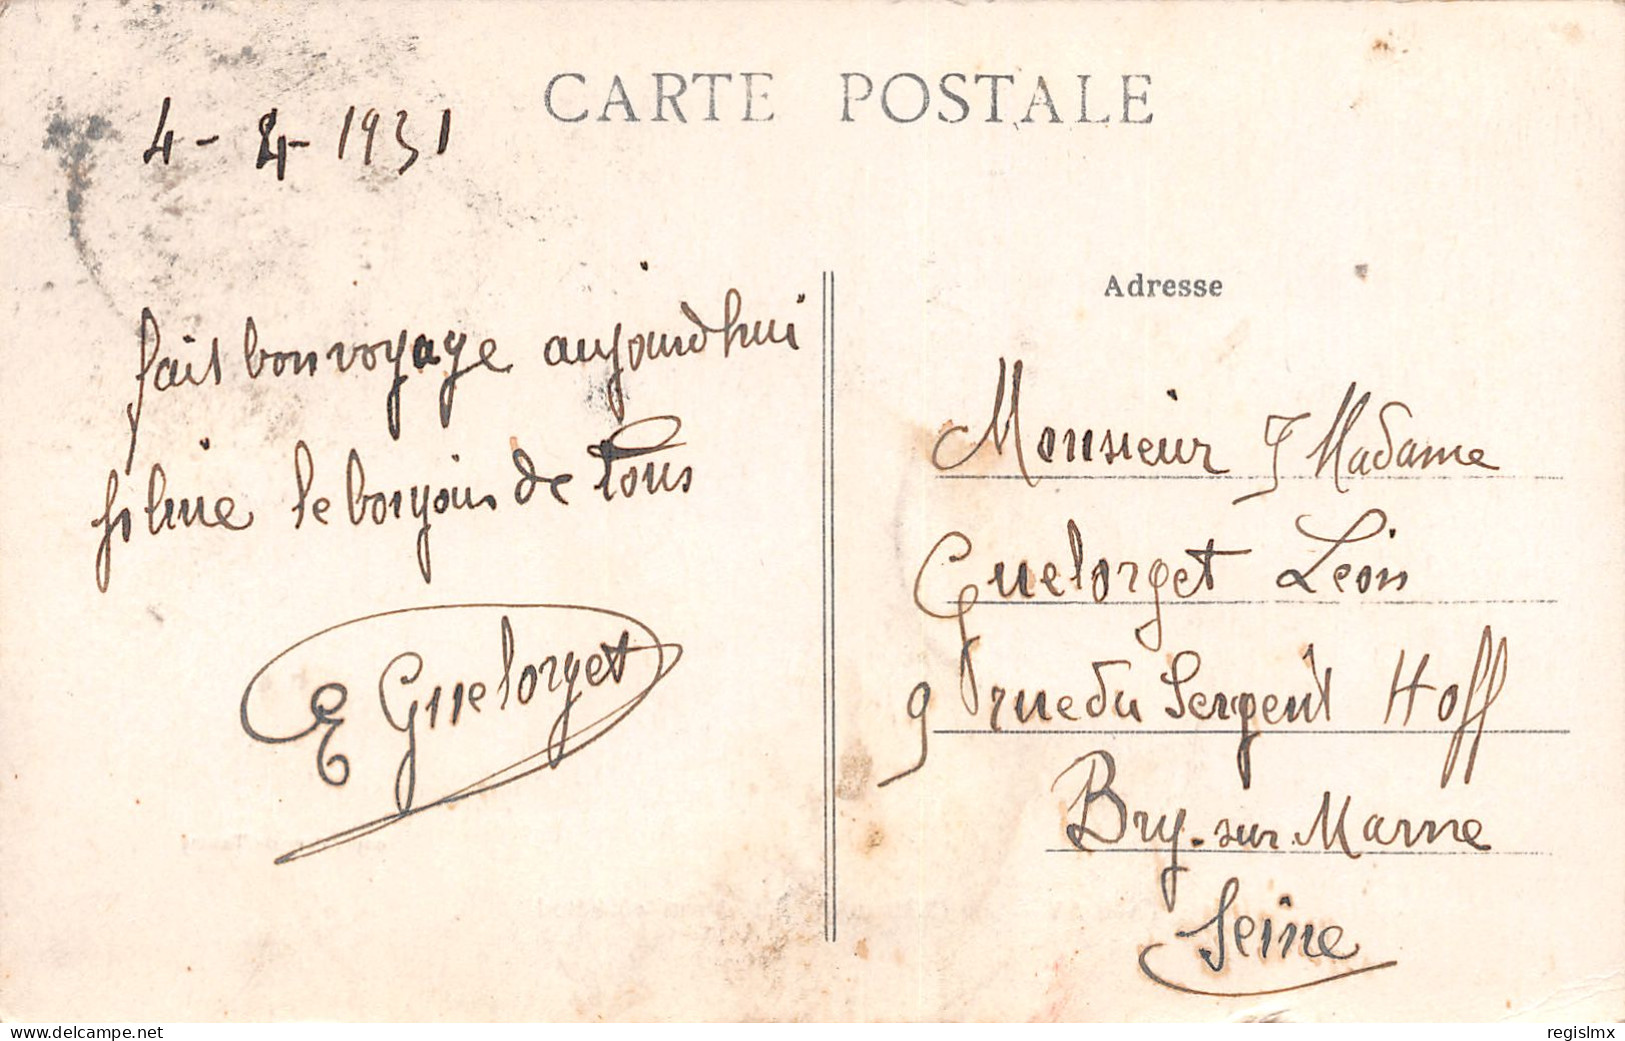 CARTE POSTALE
4-4-1931
fait bon voyage aujourdhui
le bonjour de Tous
E Guelorget
Adresse
Monsieur & Madame
Guelorget Léon
9 rue du Sergent Hoff
Bry-sur-Marne
Seine
www.delcampe.net
regislmx